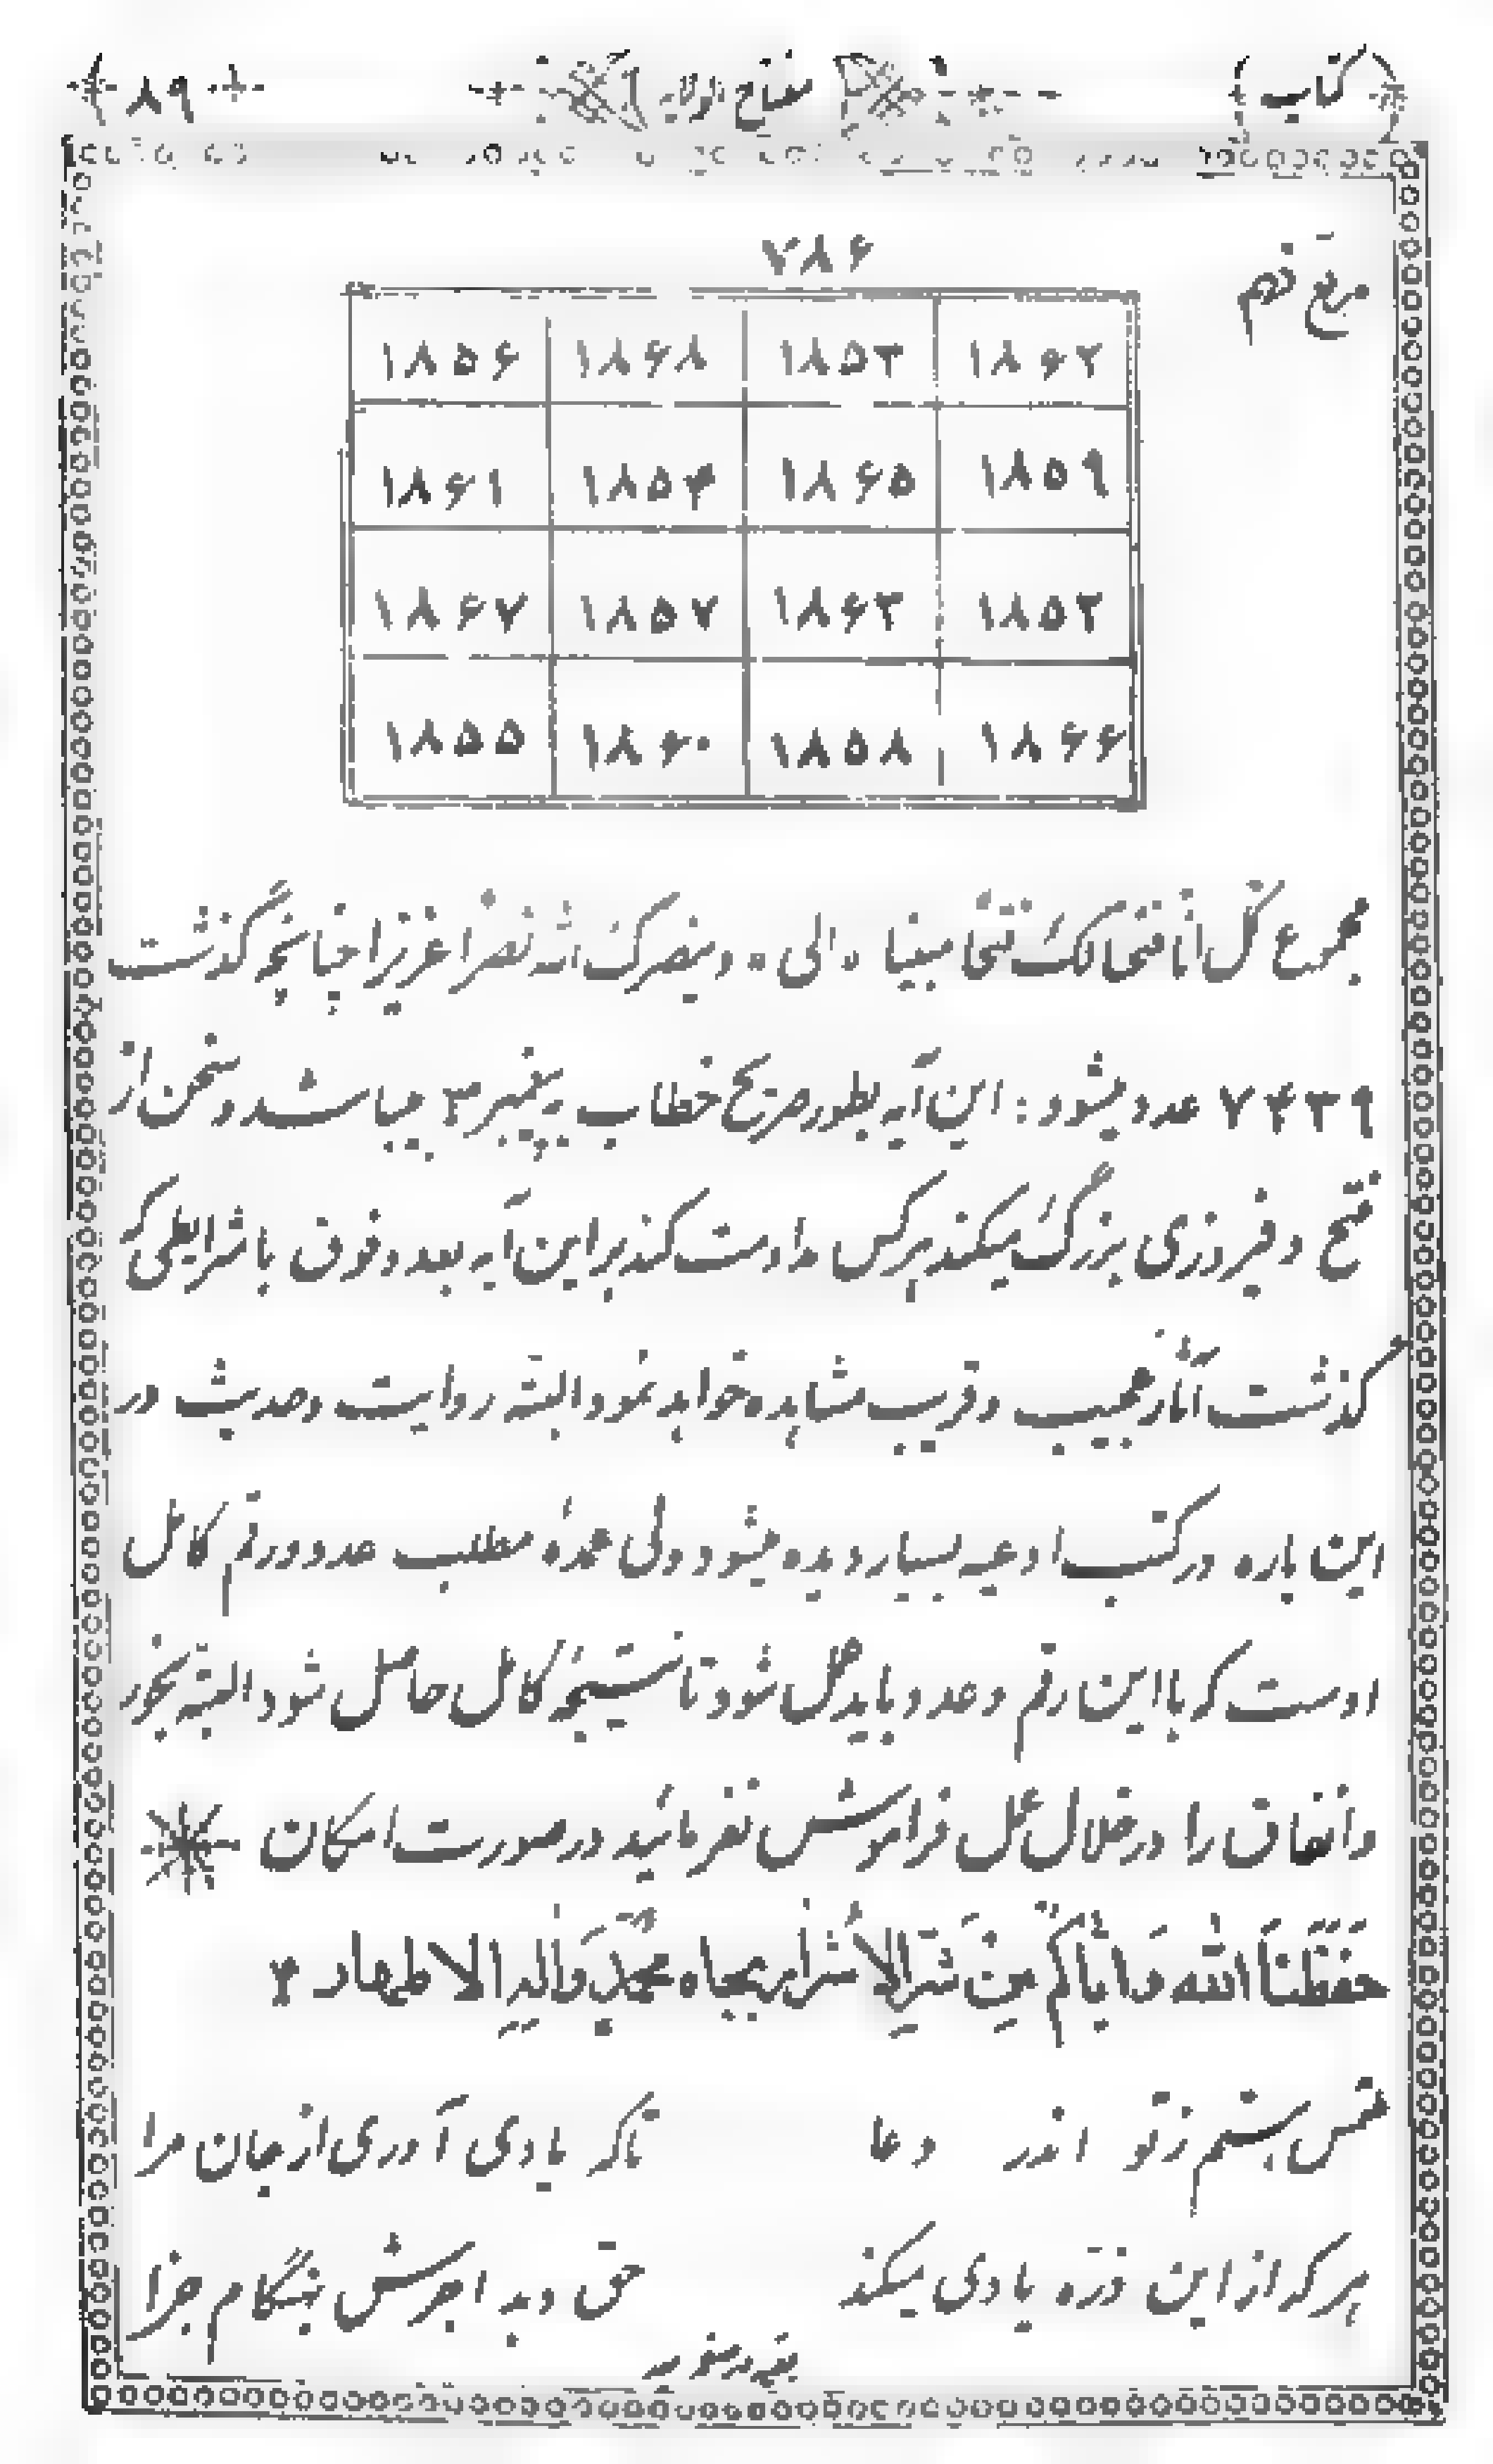 کتاب مفتاح الولایه ۸۹
مربع نهم
۷۸۶
۱۸۵۶ ۱۸۶۸ ۱۸۵۳ ۱۸۶۲
۱۸۶۱ ۱۸۵۴ ۱۸۶۵ ۱۸۵۹
۱۸۶۷ ۱۸۵۷ ۱۸۶۳ ۱۸۵۲
۱۸۵۵ ۱۸۶۰ ۱۸۵۸ ۱۸۶۶
مجموع کل انا فتحنا لک فتحا مبینا ه الی ه و ینصرک الله نصرا عزیزا چنانچه گذشت
۷۴۳۹ عدد میشود : این آیه بطور صریح خطاب به پیغمبر میباشد و سخن از
فتح و فیروزی بزرگ میکند هرکس مداومت کند بر این آیه بعدد فوق با شرایطی که
گذشت آثار عجیب و قریب مشاهده خواهد نمود البته روایت و حدیث در
این باره در کتب ادعیه بسیار دیده میشود ولی عمدهٔ مطلب عدد و رقم کامل
اوست که با این رقم و عدد باید عمل شود تا نتیجهٔ کامل حاصل شود البته بخور
و انفاق را در خلال عمل فراموش نفرمائید در صورت امکان
حَفَظَنَا الله وَ اِیّاکُم مِن شَرِّ الاَشرار بجاه مُحَمَّدٍ وَالِهِ الاطهار
ملتمس هستم ز تو اندر دعا تا که یادی آوری از جان مرا
هر که از این ذره یادی میکند حق دهد اجرش بهنگام جزا
بقیه در صفحه بعد